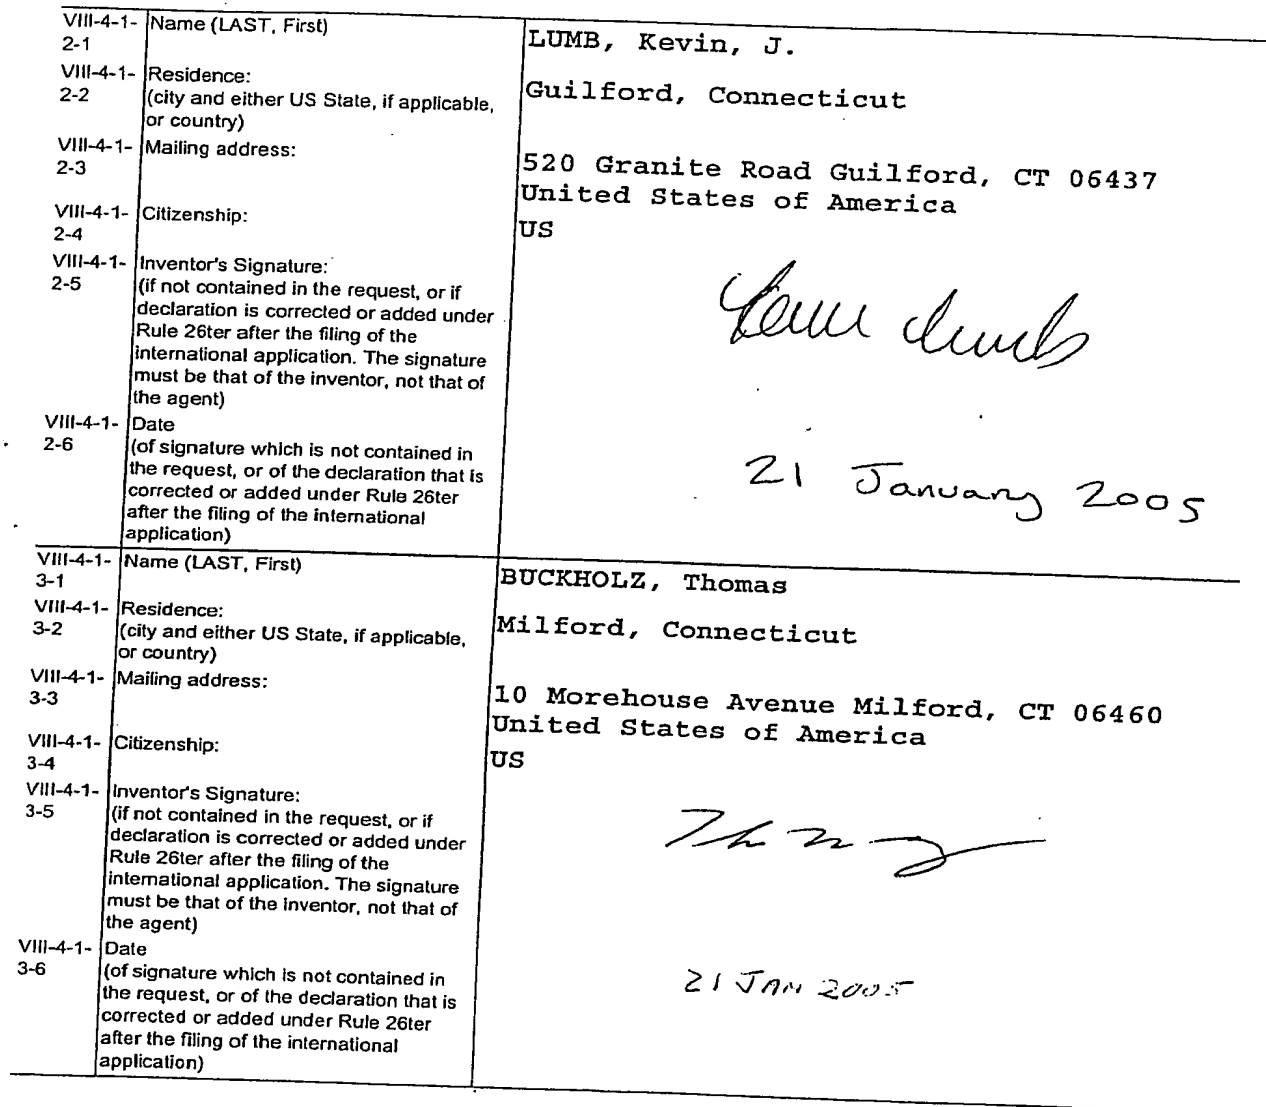 VIII-4-1-2-1 Name (LAST, First) LUMB, Kevin, J.
VIII-4-1-2-2 Residence: (city and either US State, if applicable, or country) Guilford, Connecticut
VIII-4-1-2-3 Mailing address: 520 Granite Road Guilford, CT 06437
United States of America
VIII-4-1-2-4 Citizenship: US
VIII-4-1-2-5 Inventor's Signature:
(if not contained in the request, or if
declaration is corrected or added under
Rule 26ter after the filing of the
international application. The signature
must be that of the inventor, not that of
the agent)
Kevin Lumb
VIII-4-1-2-6 Date
(of signature which is not contained in
the request, or of the declaration that is
corrected or added under Rule 26ter
after the filing of the international
application)
21 January 2005
VIII-4-1-3-1 Name (LAST, First) BUCKHOLZ, Thomas
VIII-4-1-3-2 Residence: (city and either US State, if applicable, or country) Milford, Connecticut
VIII-4-1-3-3 Mailing address: 10 Morehouse Avenue Milford, CT 06460
United States of America
VIII-4-1-3-4 Citizenship: US
VIII-4-1-3-5 Inventor's Signature:
(if not contained in the request, or if
declaration is corrected or added under
Rule 26ter after the filing of the
international application. The signature
must be that of the inventor, not that of
the agent)
VIII-4-1-3-6 Date
(of signature which is not contained in
the request, or of the declaration that is
corrected or added under Rule 26ter
after the filing of the international
application)
21 JAN 2005